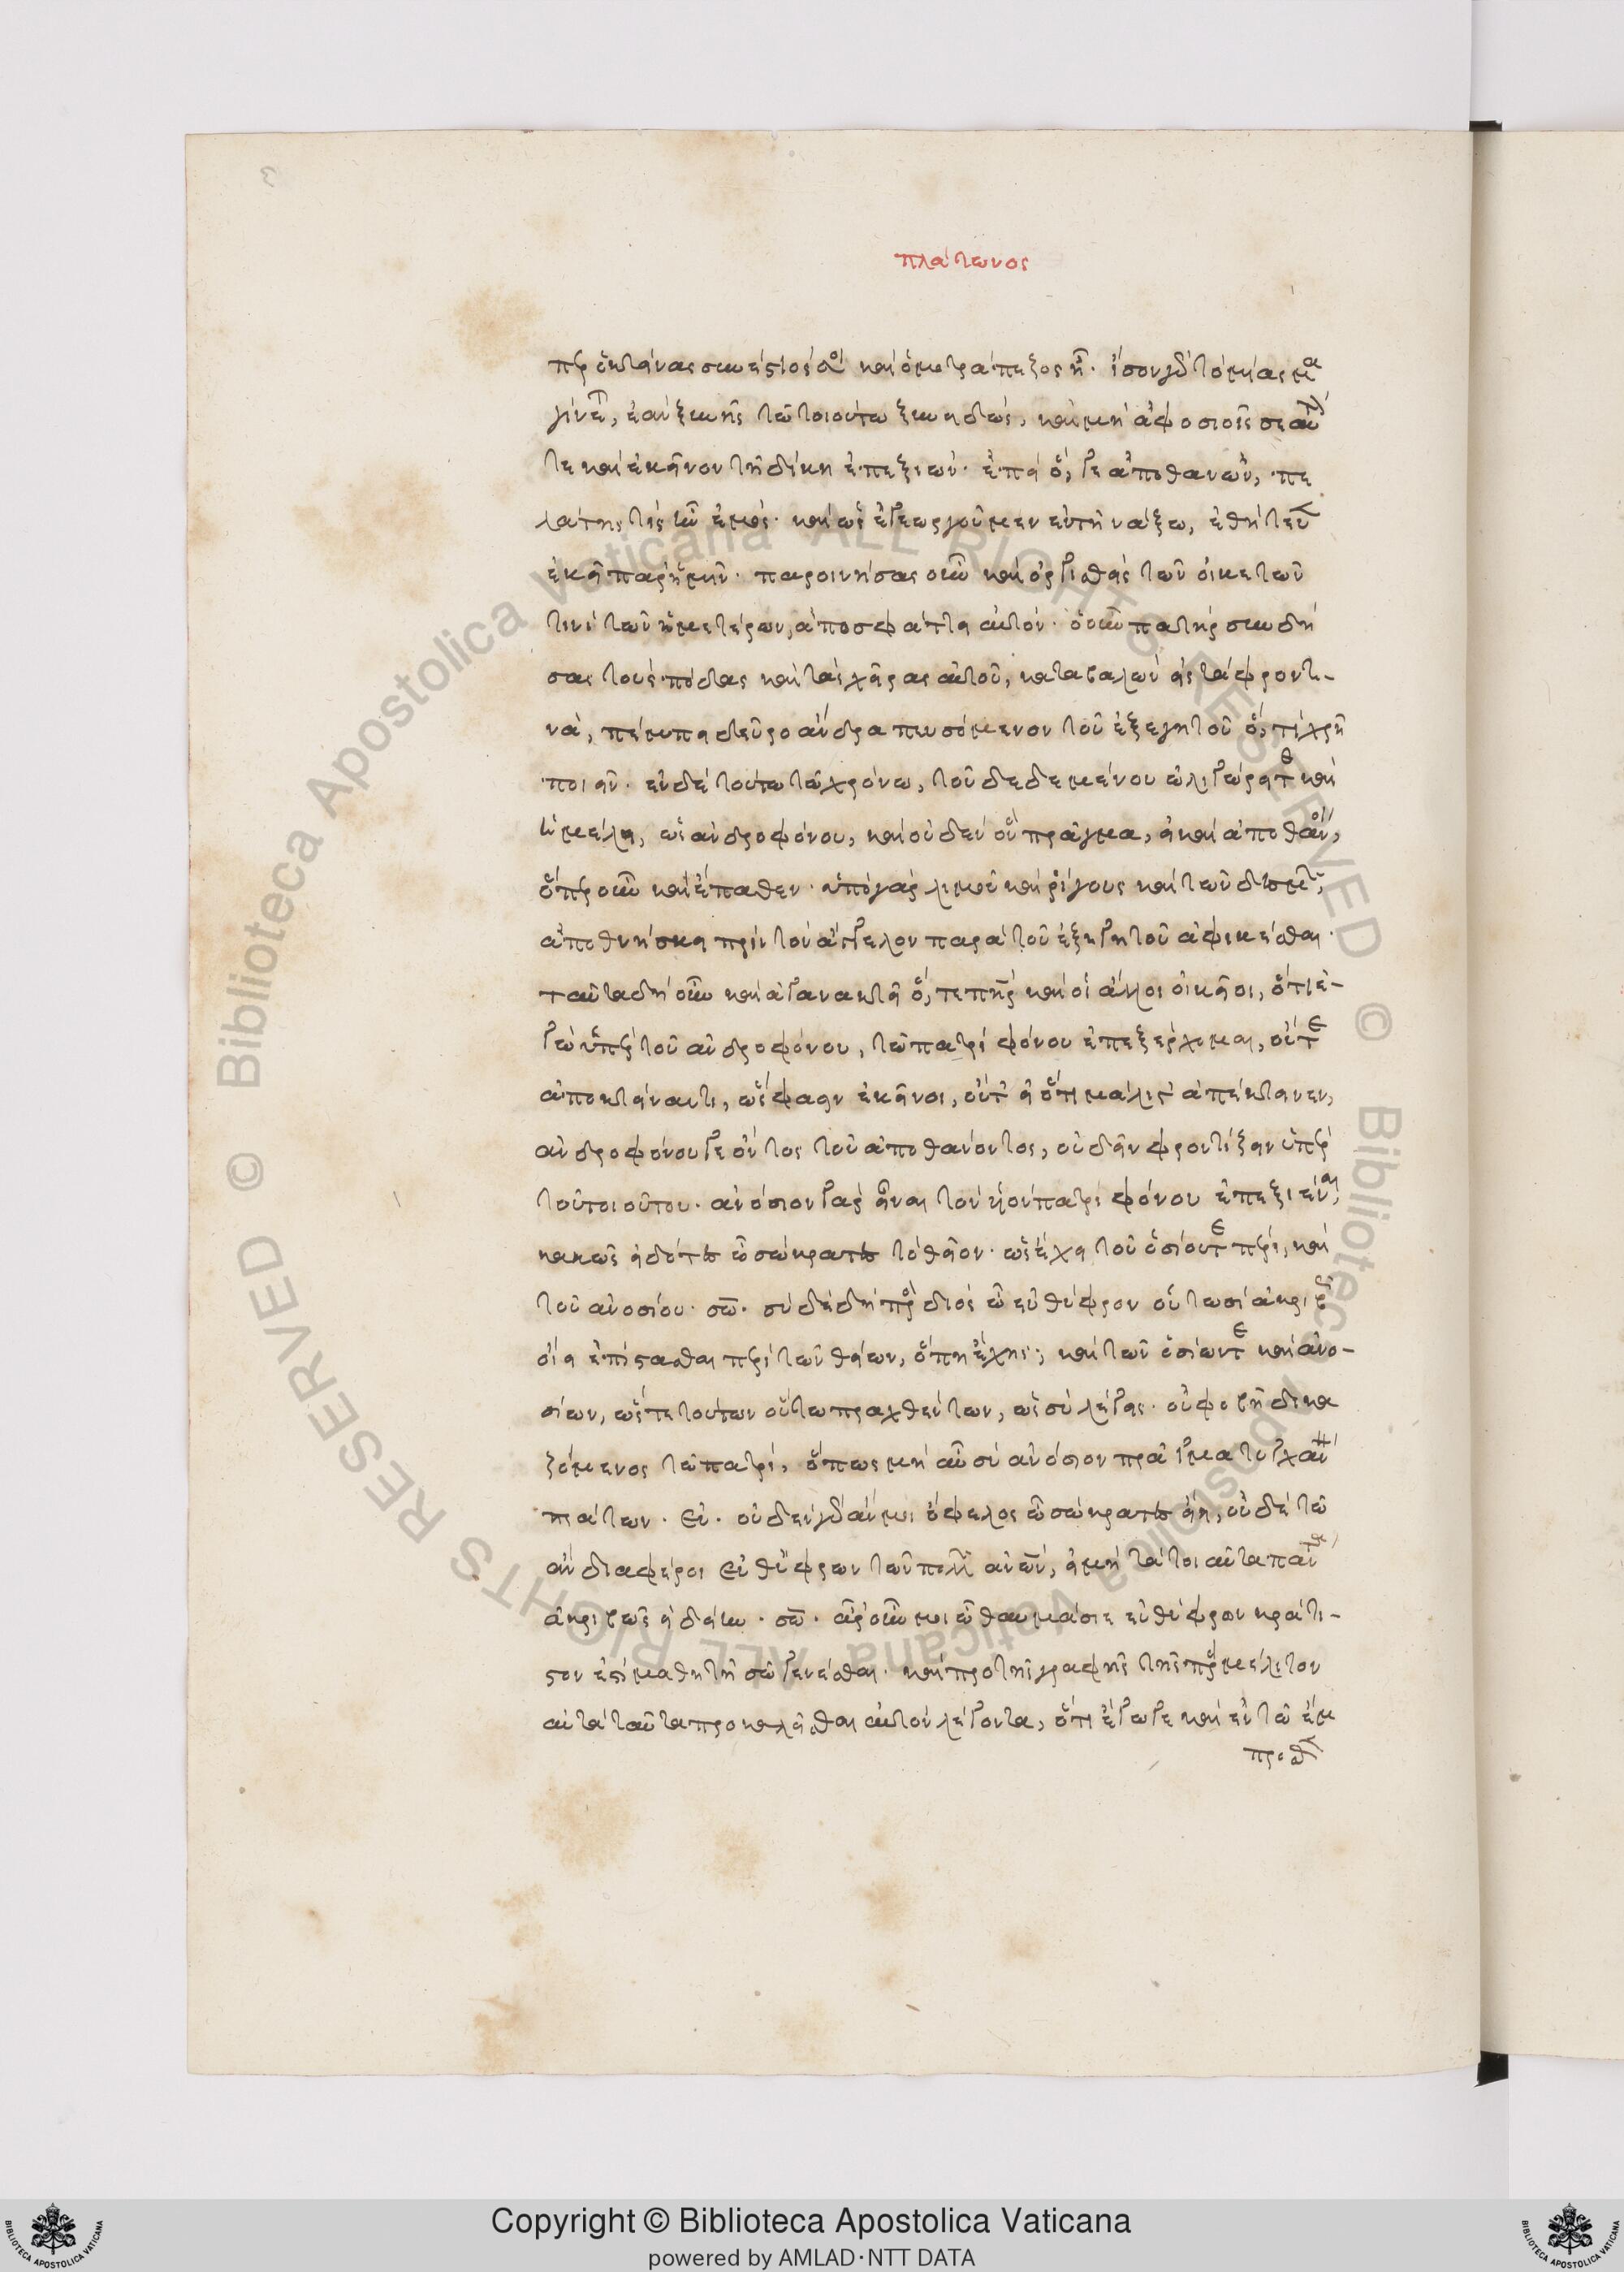 πλάτωνος
περ ὁ κτείνας συνέστιός σοι καὶ ὁμοτράπεζος ᾖ. ἴσον γὰρ τὸ μίασμα
γίνεται, ἐὰν ξυνῇς τῶ τοιούτω ξυνειδώς, καὶ μὴ ἀφοσιοῖς σεαυτόν
τε καὶ ἐκεῖνον τῇ δίκη ἐπεξιών. ἐπεὶ ὅ, γε ἀποθανὼν, πε
λάτης τὶς ἦν ἐμός. καὶ ὡς ἐγεωργοῦμεν ἐν τῇ νάξω, ἐθήτευεν
ἐκεῖ παρ' ἡμῖν. παροινήσας οὖν καὶ ὀργισθεὶς τῶν οἰκετῶν
τινὶ τῶν ἡμετέρων, ἀποσφάττει αὐτόν. ὁ οὖν πατὴρ συνδή
σας τοὺς πόδας καὶ τὰς χεῖρας αὐτοῦ, καταβαλὼν εἰς τάφρον τι-
νὰ, πέμπει δεῦρο ἄνδρα πευσόμενον τοῦ ἐξεγητοῦ ὅ, τι χρῆ
ποιεῖν. ἐν δὲ τούτω τῶ χρόνω, τοῦ δεδεμένου ὠλιγώρει τε καὶ
ἠμέλει, ὡς ἀνδροφόνου, καὶ οὐδὲν ὂν πρᾶγμα, εἰ καὶ ἀποθάνοι,
ὅπερ οὖν καὶ ἔπαθεν. ὑπὸ γὰρ λιμοῦ καὶ ρίγους καὶ τῶν δεσμῶν,
ἀποθνήσκει πρὶν τὸν ἄγγελον παρὰ τοῦ ἐξηγητοῦ ἀφικέσθαι.
ταῦτα δὴ οὖν καὶ ἀγανακτεῖ ὅ, τε πατὴρ καὶ οἱ ἄλλοι οἰκεῖοι, ὅτι ἐ-
γὼ ὑπὲρ τοῦ ἀνδροφόνου, τῶ πατρὶ φόνου ἐπεξέρχομαι, οὔτε
ἀποκτείναντι, ὥς φασιν ἐκεῖνοι, οὔτ' εἰ ὅτι μάλιστ' ἀπέκτεινεν,
ἀνδροφόνου γε ὄντος τοῦ ἀποθανόντος, οὐ δεῖν φροντίζειν ὑπὲρ
τοῦ τοιούτου. ἀνόσιον γὰρ εἶναι τὸν υἱὸν πατρὶ φόνου ἐπεξιέναι,
κακῶς εἰδότες ὦ σώκρατες τὸ θεῖον. ὡς ἔχει τοῦ ὁσίου τε πέρι, καὶ
τοῦ ἀνοσίου. σω. σὺ δὲ δὴ πρὸς διὸς ὦ εὐθύφρον οὑτωσὶ ἀκριβῶς
οἴει ἐπίστασθαι περὶ τῶν θείων, ὅπη ἔχει; καὶ τῶν ὁσίων τε καὶ ἀνο-
σίων, ὥστε τούτων οὕτω πραχθέντων, ὡς σὺ λέγεις. οὐ φοβῇ δικα
ζόμενος τῶ πατρὶ, ὅπως μὴ αὖ σὺ ἀνόσιον πρᾶγμα τυγχάνῃς
πράττων. ευ. οὐδὲν γὰρ ἄν μοι ὄφελος ὦ σώκρατες εἴη, οὐδέ τω
ἂν διαφέροι εὐθύφρων τῶν πολλῶν ἀνθρώπων, εἰ μὴ τὰ τοιαῦτα πάντα
ἀκριβῶς εἰδείην. σω. ἆρ' οὖν μοι ὦ θαυμάσιε εὐθύφρον κράτι-
στον ἐστὶ μαθητῇ σῶ γενέσθαι. καὶ προ τῆς γραφῆς τῆς πρὸς μέλιτον
αὐτὰ ταῦτα προκαλεῖσθαι αὐτὸν λέγοντα, ὅτι ἔγωγε καὶ ἐν τῶ ἔμ
προσθεν